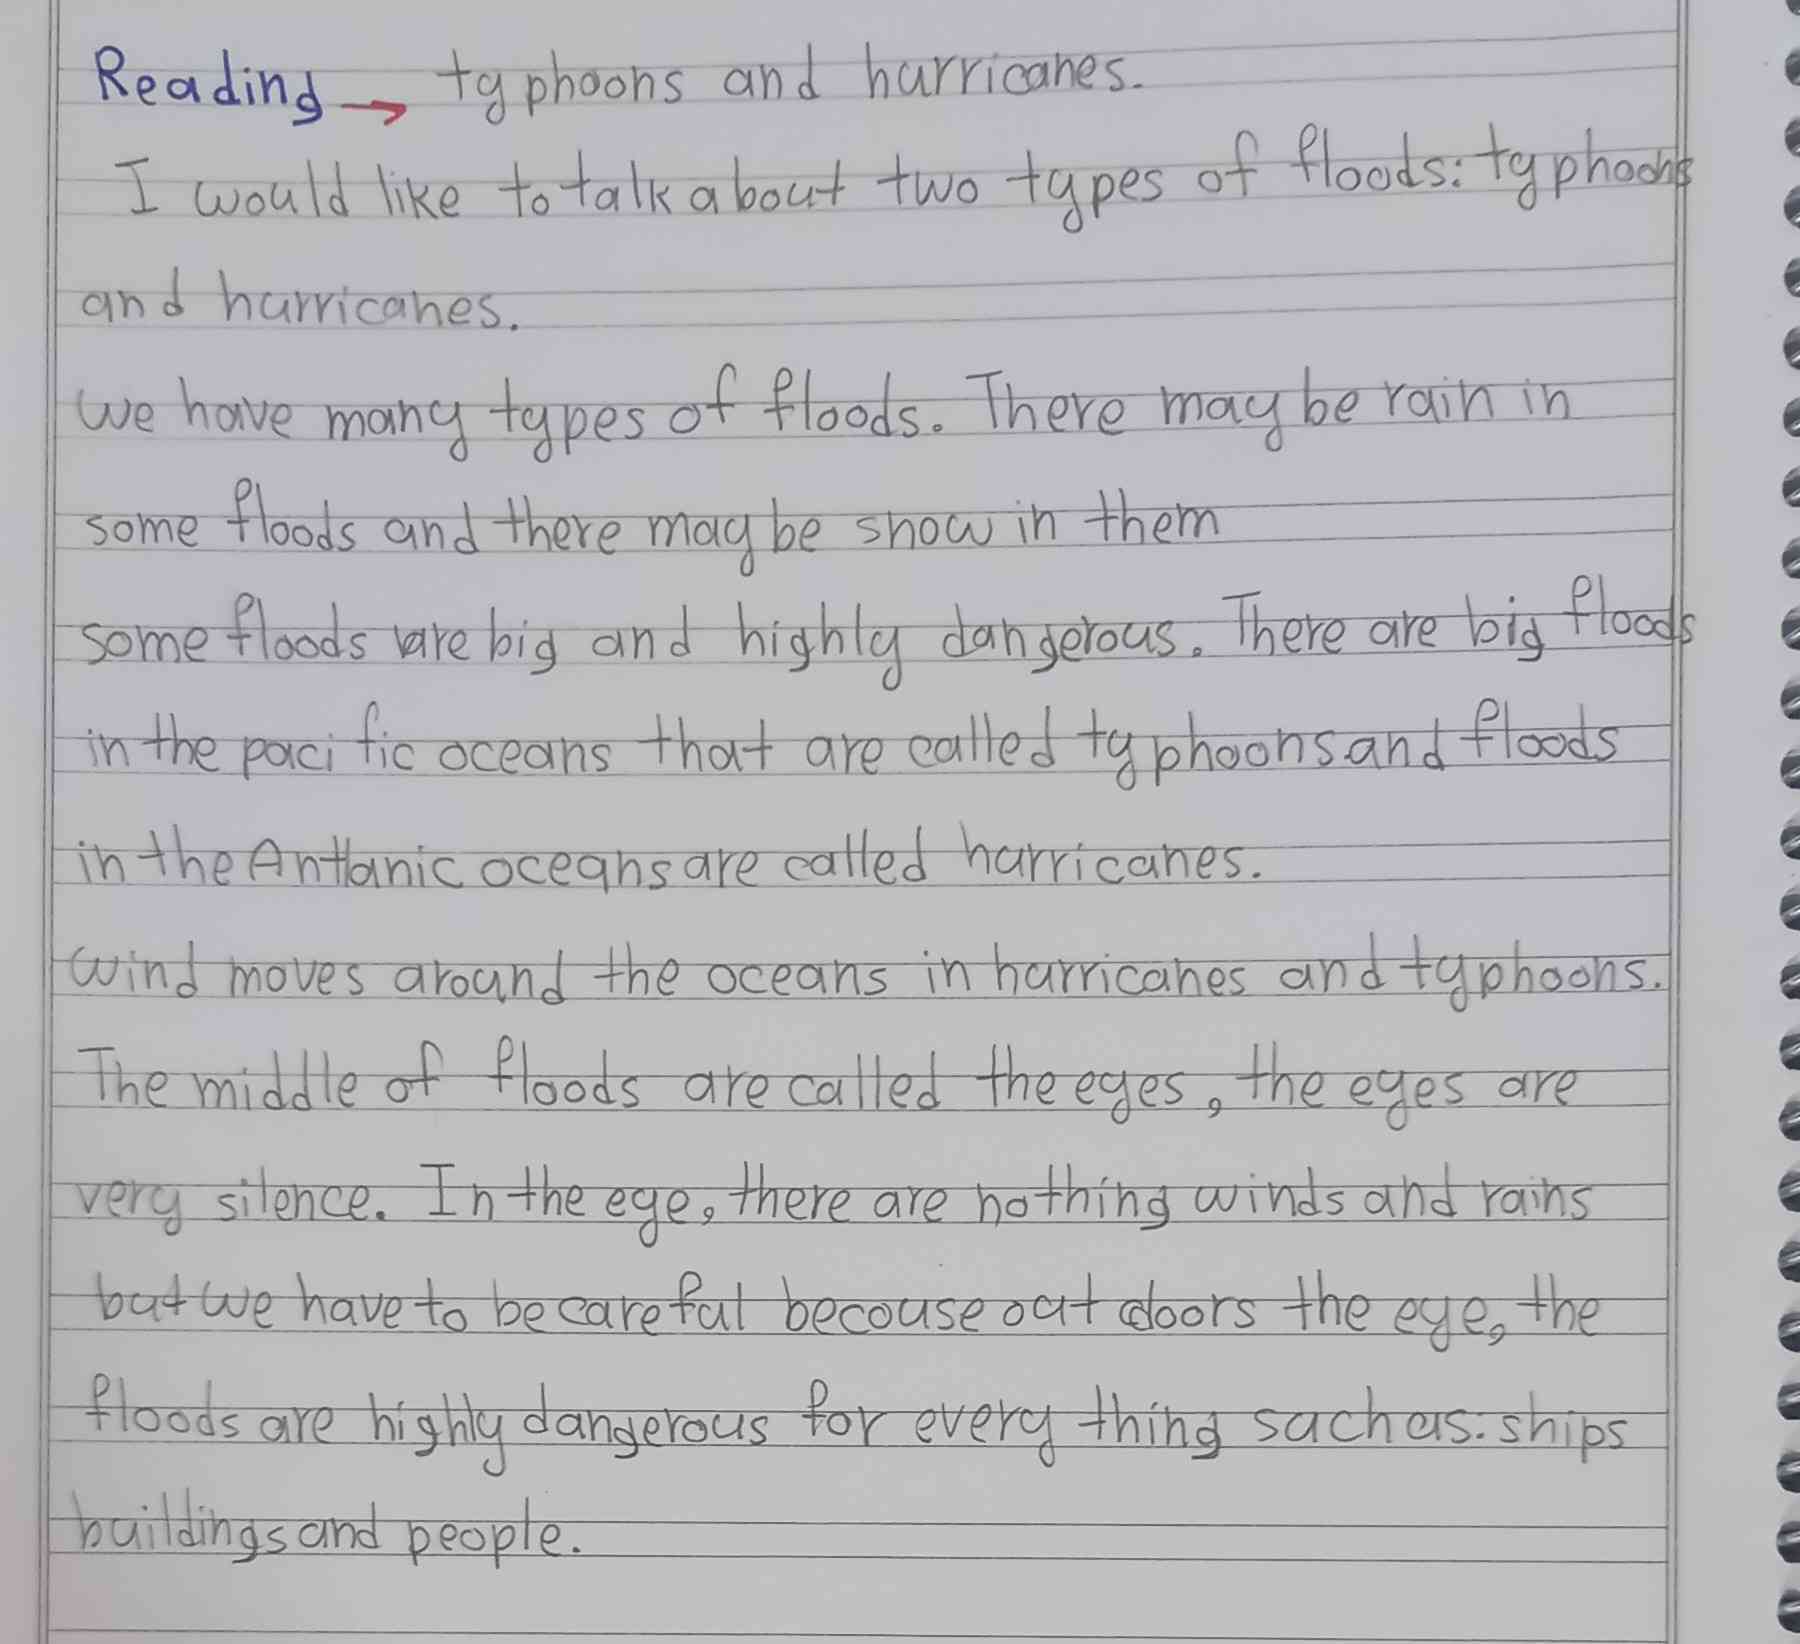 Reading → typhoons and hurricanes.
I would like to talk about two types of floods: typhoons
and hurricanes.
we have many types of floods. There may be rain in
some floods and there may be snow in them
some floods are big and highly dangerous. There are big floods
in the pacific oceans that are called typhoons and floods
in the Antlanic oceans are called hurricanes.
wind moves around the oceans in hurricanes and typhoons.
The middle of floods are called the eyes, the eyes are
very silence. In the eye, there are nothing winds and rains
but we have to be careful becouse out doors the eye, the
floods are highly dangerous for every thing such as: ships
buildings and people.